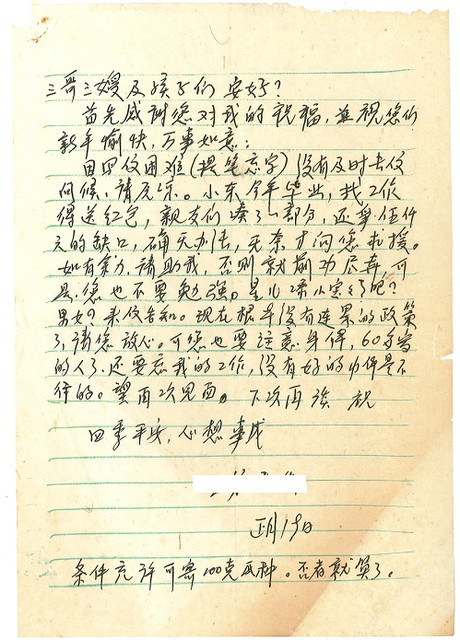 三哥三嫂及孩子们 安好？
首先感谢您对我的祝福，并祝您们
新年愉快，万事如意：
因回信困难(提笔忘字)没有及时去信
问候，请见谅。小东今年毕业，找工作
得送红包，亲友们凑了一部分，还享伍仟
元的缺口，确无办法，无奈才向您求援。
如有余力，请助我，否则就前功尽弃，可
是，您也不要勉强。星儿添小宝了吧？
男女？来信告知。现在根本没有连累的政策
了，请您放心。可您也要注意身体，60多岁
的人了，还要忘我的工作，没有好的身体是不
行的。望再次见面。下次再谈 祝
四季平安，心想事成
正月19日
条件允许可需100克瓜种。否者就算了。